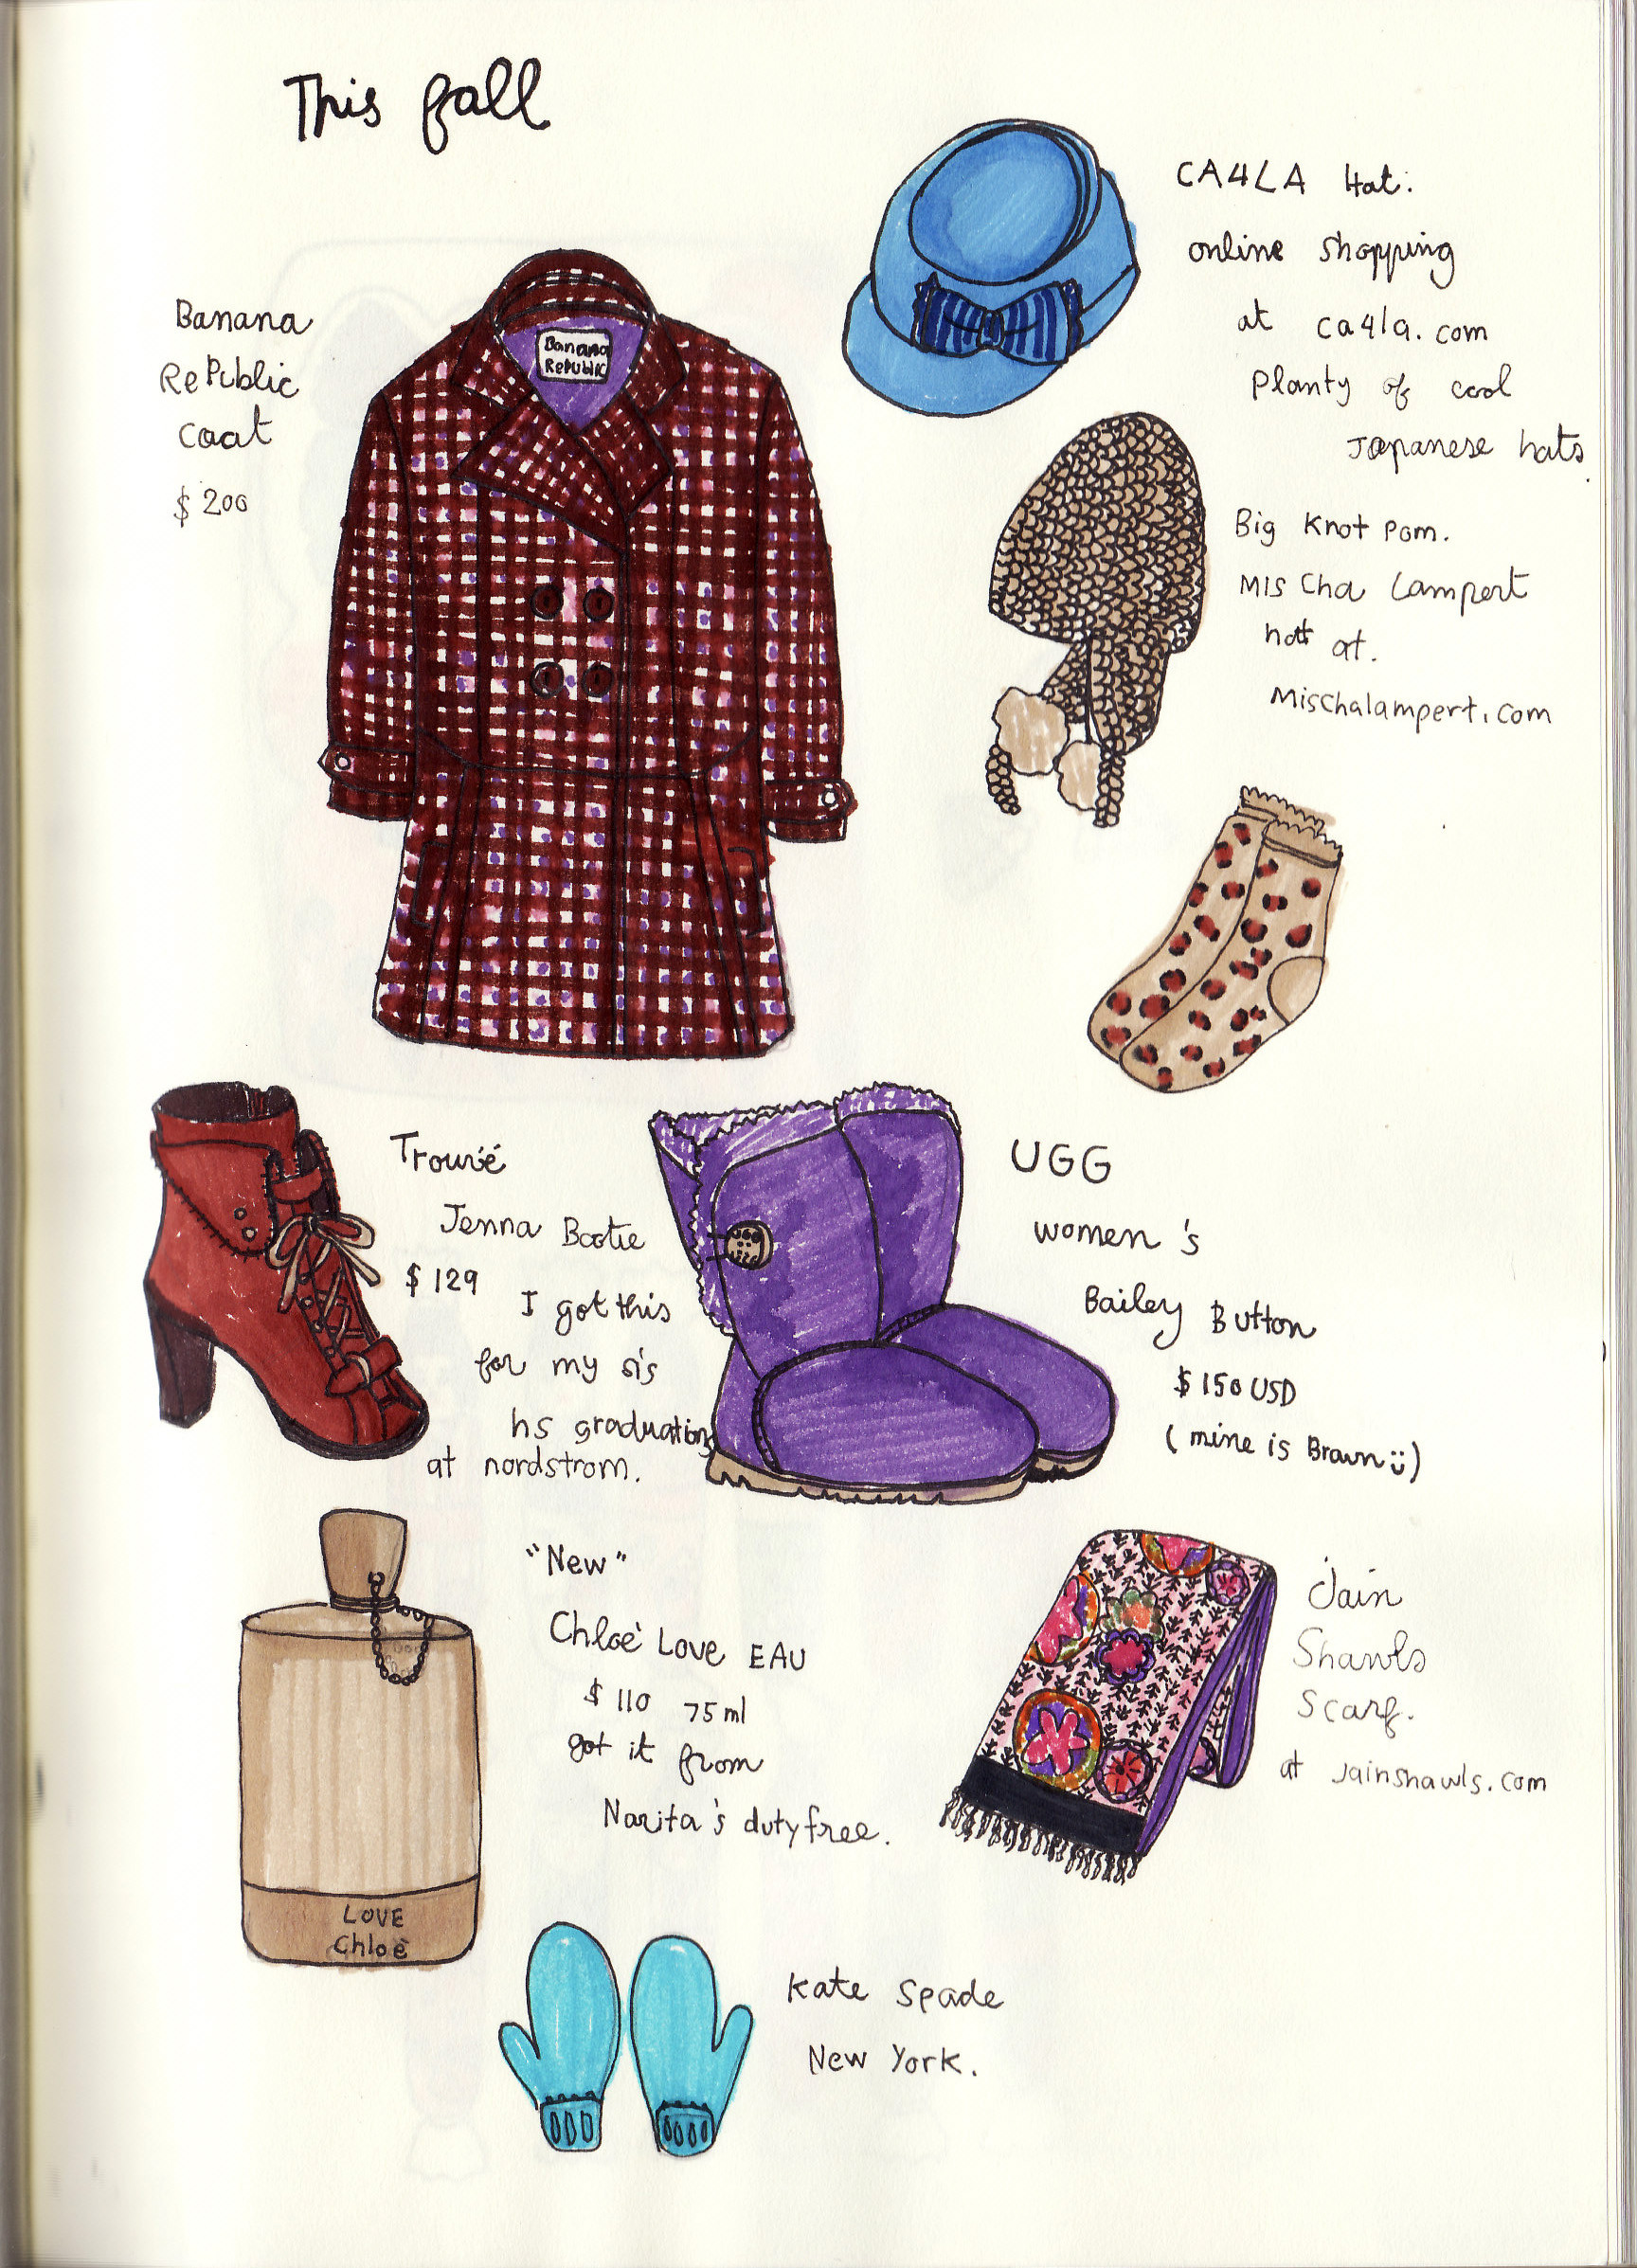 This fall
CA4LA Hat.
online shopping
at ca4la.com
Planty of cool
Japanese hats.
Banana
RePublic
coat
$ 200
Banana
RePublic
Big Knot Pom.
Mis Cha Lampert
at.
Mischalampert.com
Trouvé
Jenna Bootie
$ 129
I got this
for my sis
hs graduation
at nordstrom.
UGG
women's
Bailey Button
$ 150 USD
(mine is Brown)
"New"
Chloè Love EAU
$ 110 75ml
got it from
Narita's dutyfree.
LOVE
Chloè
Jain
Shawls
Scarf.
at Jainshawls.com
Kate Spade
New York.